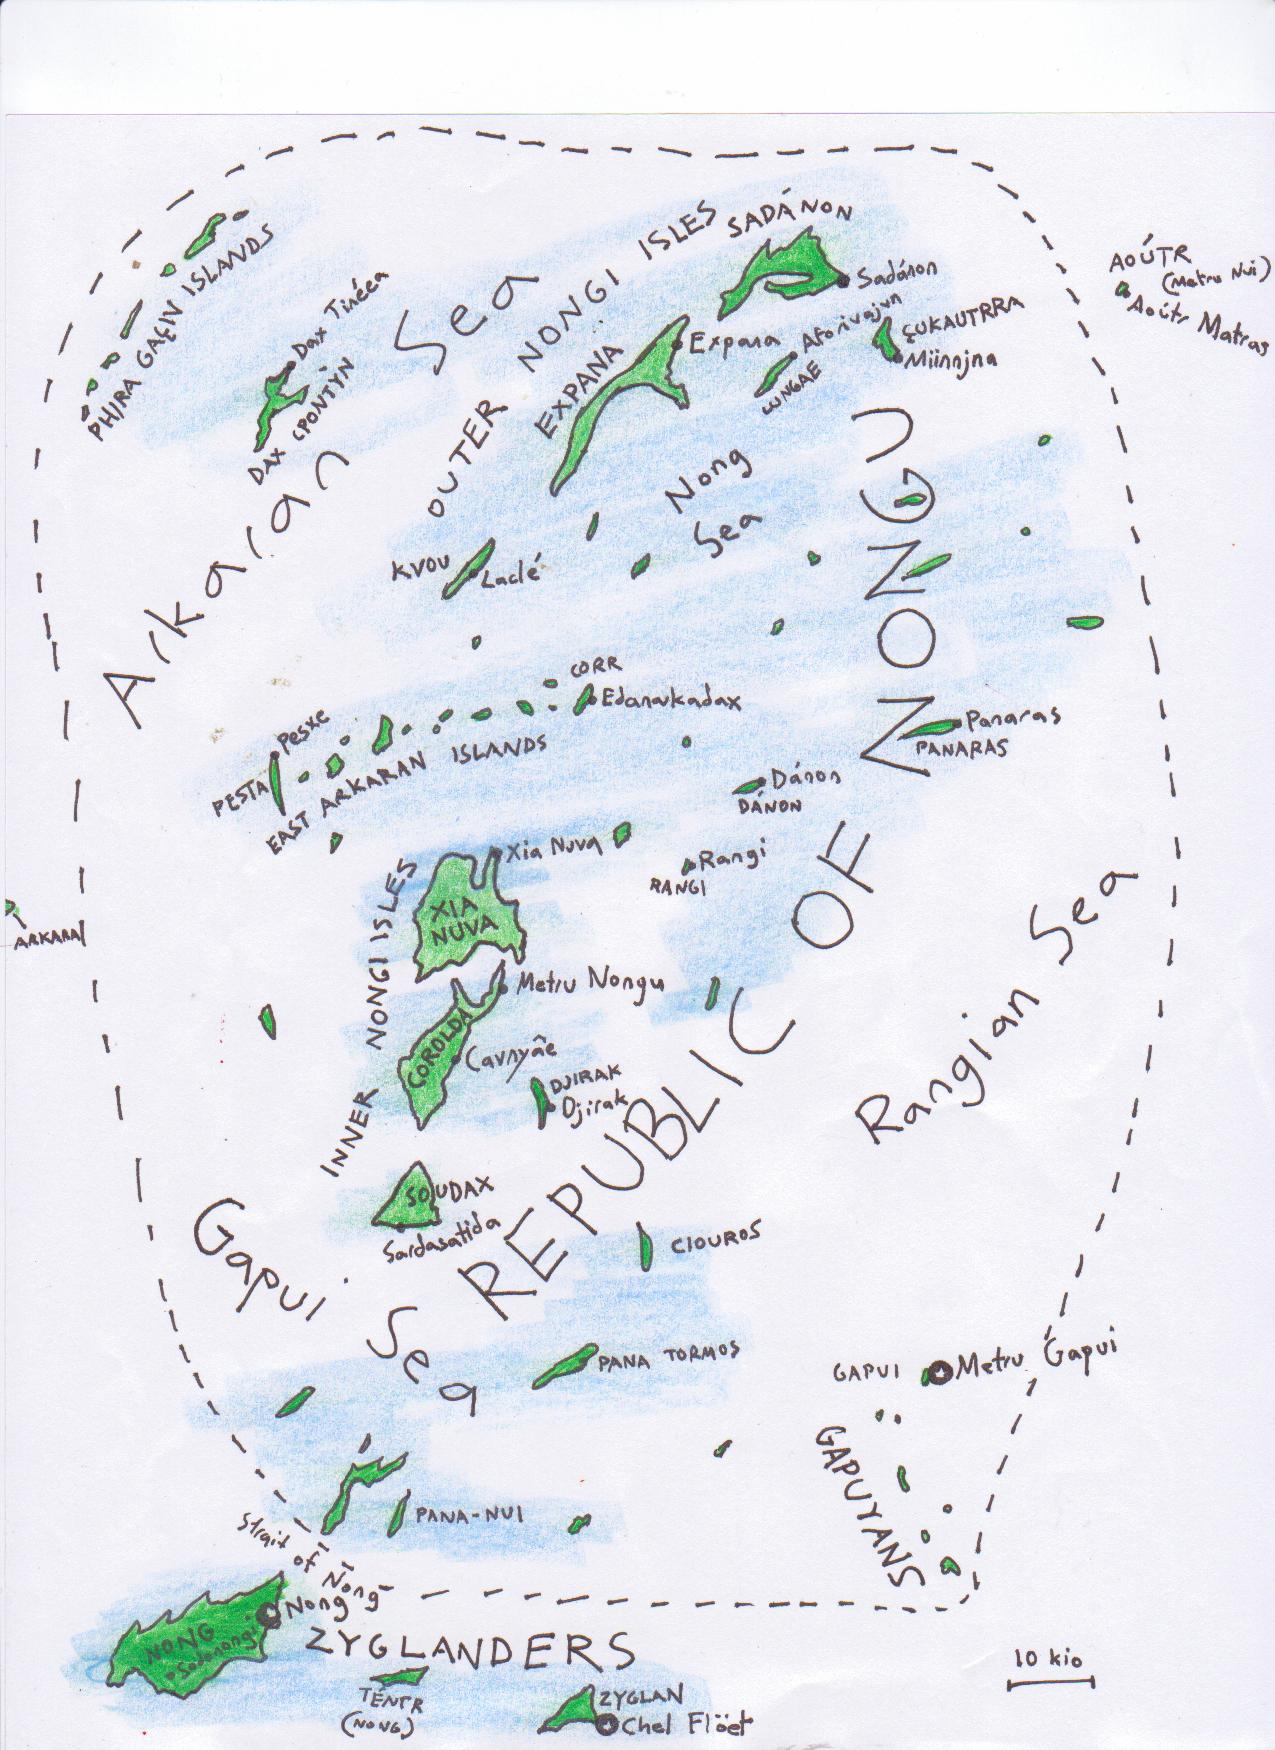 SADÁNON
OUTER NONGI ISLES
AOÚTR
(Metru Nui)
Aoútr Matras
PHIRA GAȨIN ISLANDS
Dax Tinéea
DAX ÇPONTÝN
Arkaran Sea
Sadánon
Expana
EXPANA
Aforivajun
LUNGAE
ȘUKAUTRRA
Miinnjna
Nong
Sea
KVOU
Laclé
CORR
Edanakadax
Pesxe
PESTA
EAST ARKARAN ISLANDS
Panaras
PANARAS
Dánon
DÁNON
Xia Nuva
XIA
NUVA
Rangi
RANGI
ARKARA
INNER NONGI ISLES
Metru Nongu
COROLDA
Cavnyâe
DJIRAK
Djirak
REPUBLIC OF NONGU
Rangian Sea
SOUDAX
Sardasatida
Gapui Sea
CIOUROS
PANA TORMOS
GAPUI
Metru Gapui
GAPUYANS
PANA-NUI
Strait of Nong
NONG
Nong
Sadanangi
ZYGLANDERS
TÉNTR
(NONG)
ZYGLAN
Chel Flöet
10 kio